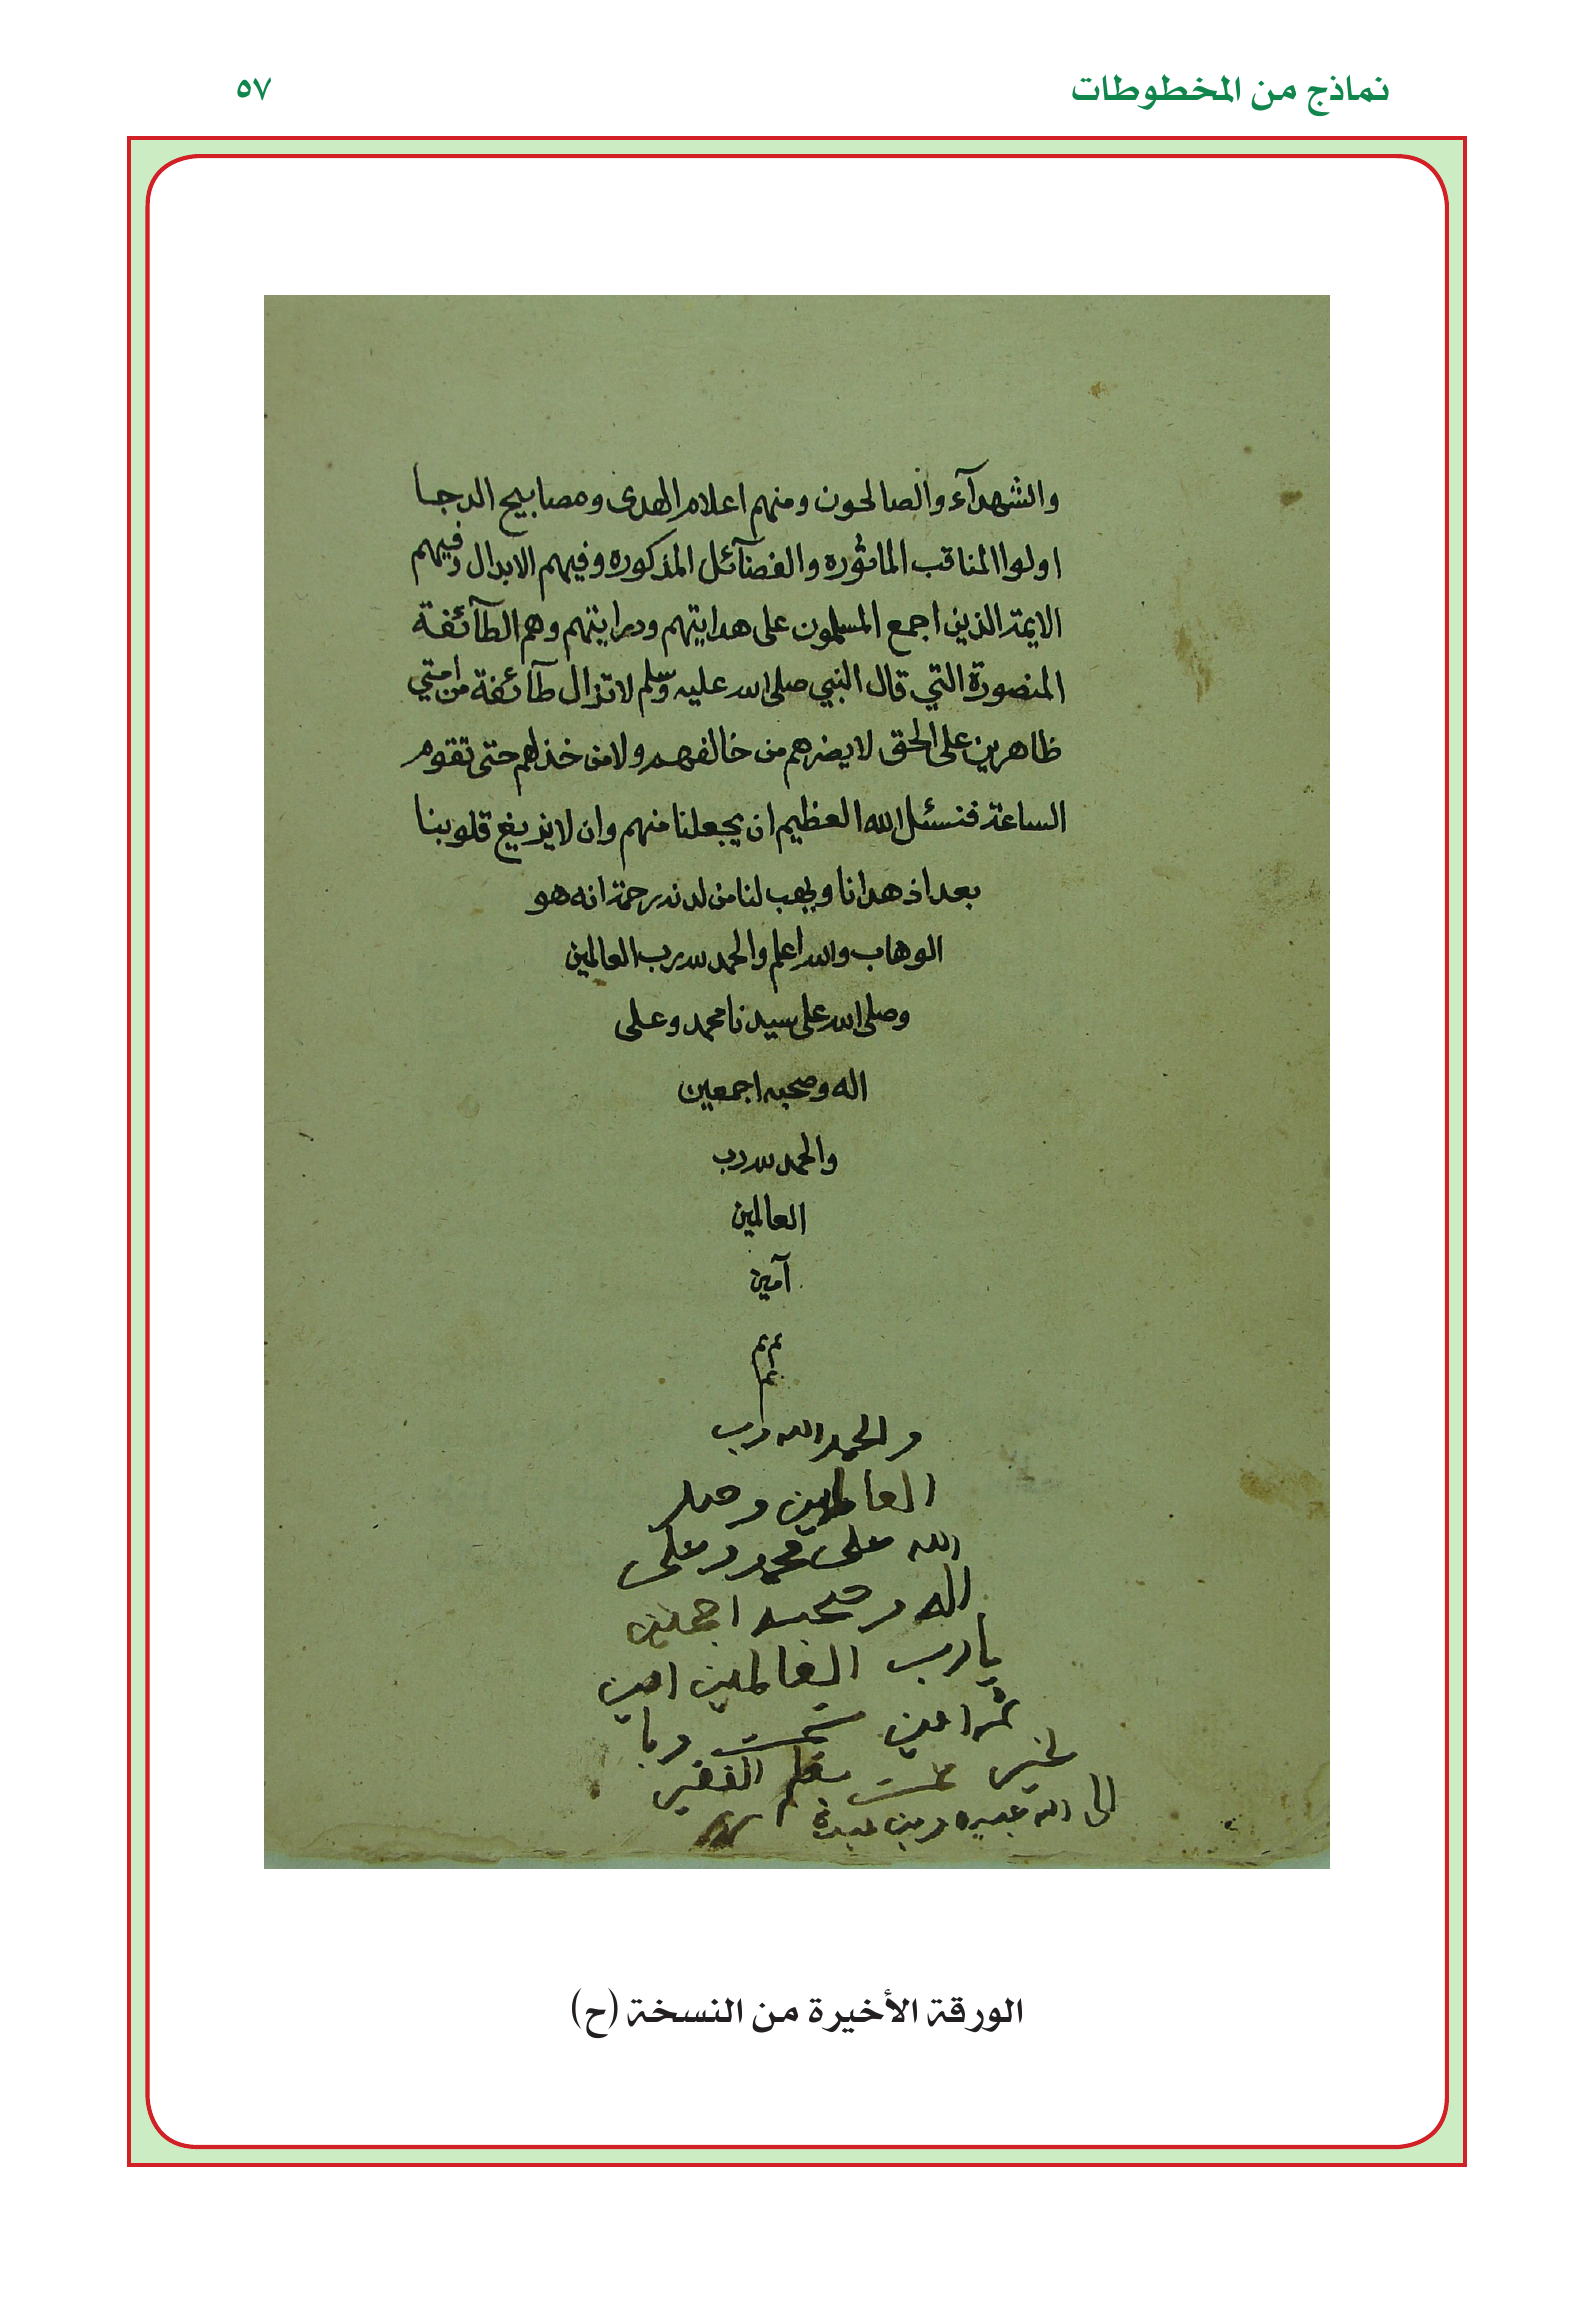 نماذج من المخطوطات ٥٧
والشهدآء والصالحون ومنهم اعلام الهدى ومصابيح الدجا
اولوا المناقب الماثوره والفضآئل المذكوره وفيهم الابدال وفيهم
الايمة الذين اجمع المسلمون على هدايتهم ودرايتهم وهم الطآئفة
المنصورة التي قال النبي صلى الله عليه وسلم لاتزال طآئفة من امتي
ظاهرين على الحق لايضرهم من خالفهم ولا من خذلهم حتى تقوم
الساعة فنسئل الله العظيم ان يجعلنا منهم وان لايزيغ قلوبنا
بعد اذ هدانا ويهب لنا من لدنه رحمة انه هو
الوهاب والله اعلم والحمد لله رب العالمين
وصلى الله على سيدنا محمد وعلى
اله وصحبه اجمعين
والحمد لله رب
العالمين
آمين
والحمد الله رب
العالمين وصلى
الله على محمد وعلى
اله وصحبه اجمعين
يارب العالمين امين
ثم امين تمت وبا
لخير تمت بقلم الفقير
الى الله
الورقة الأخيرة من النسخة (ح)